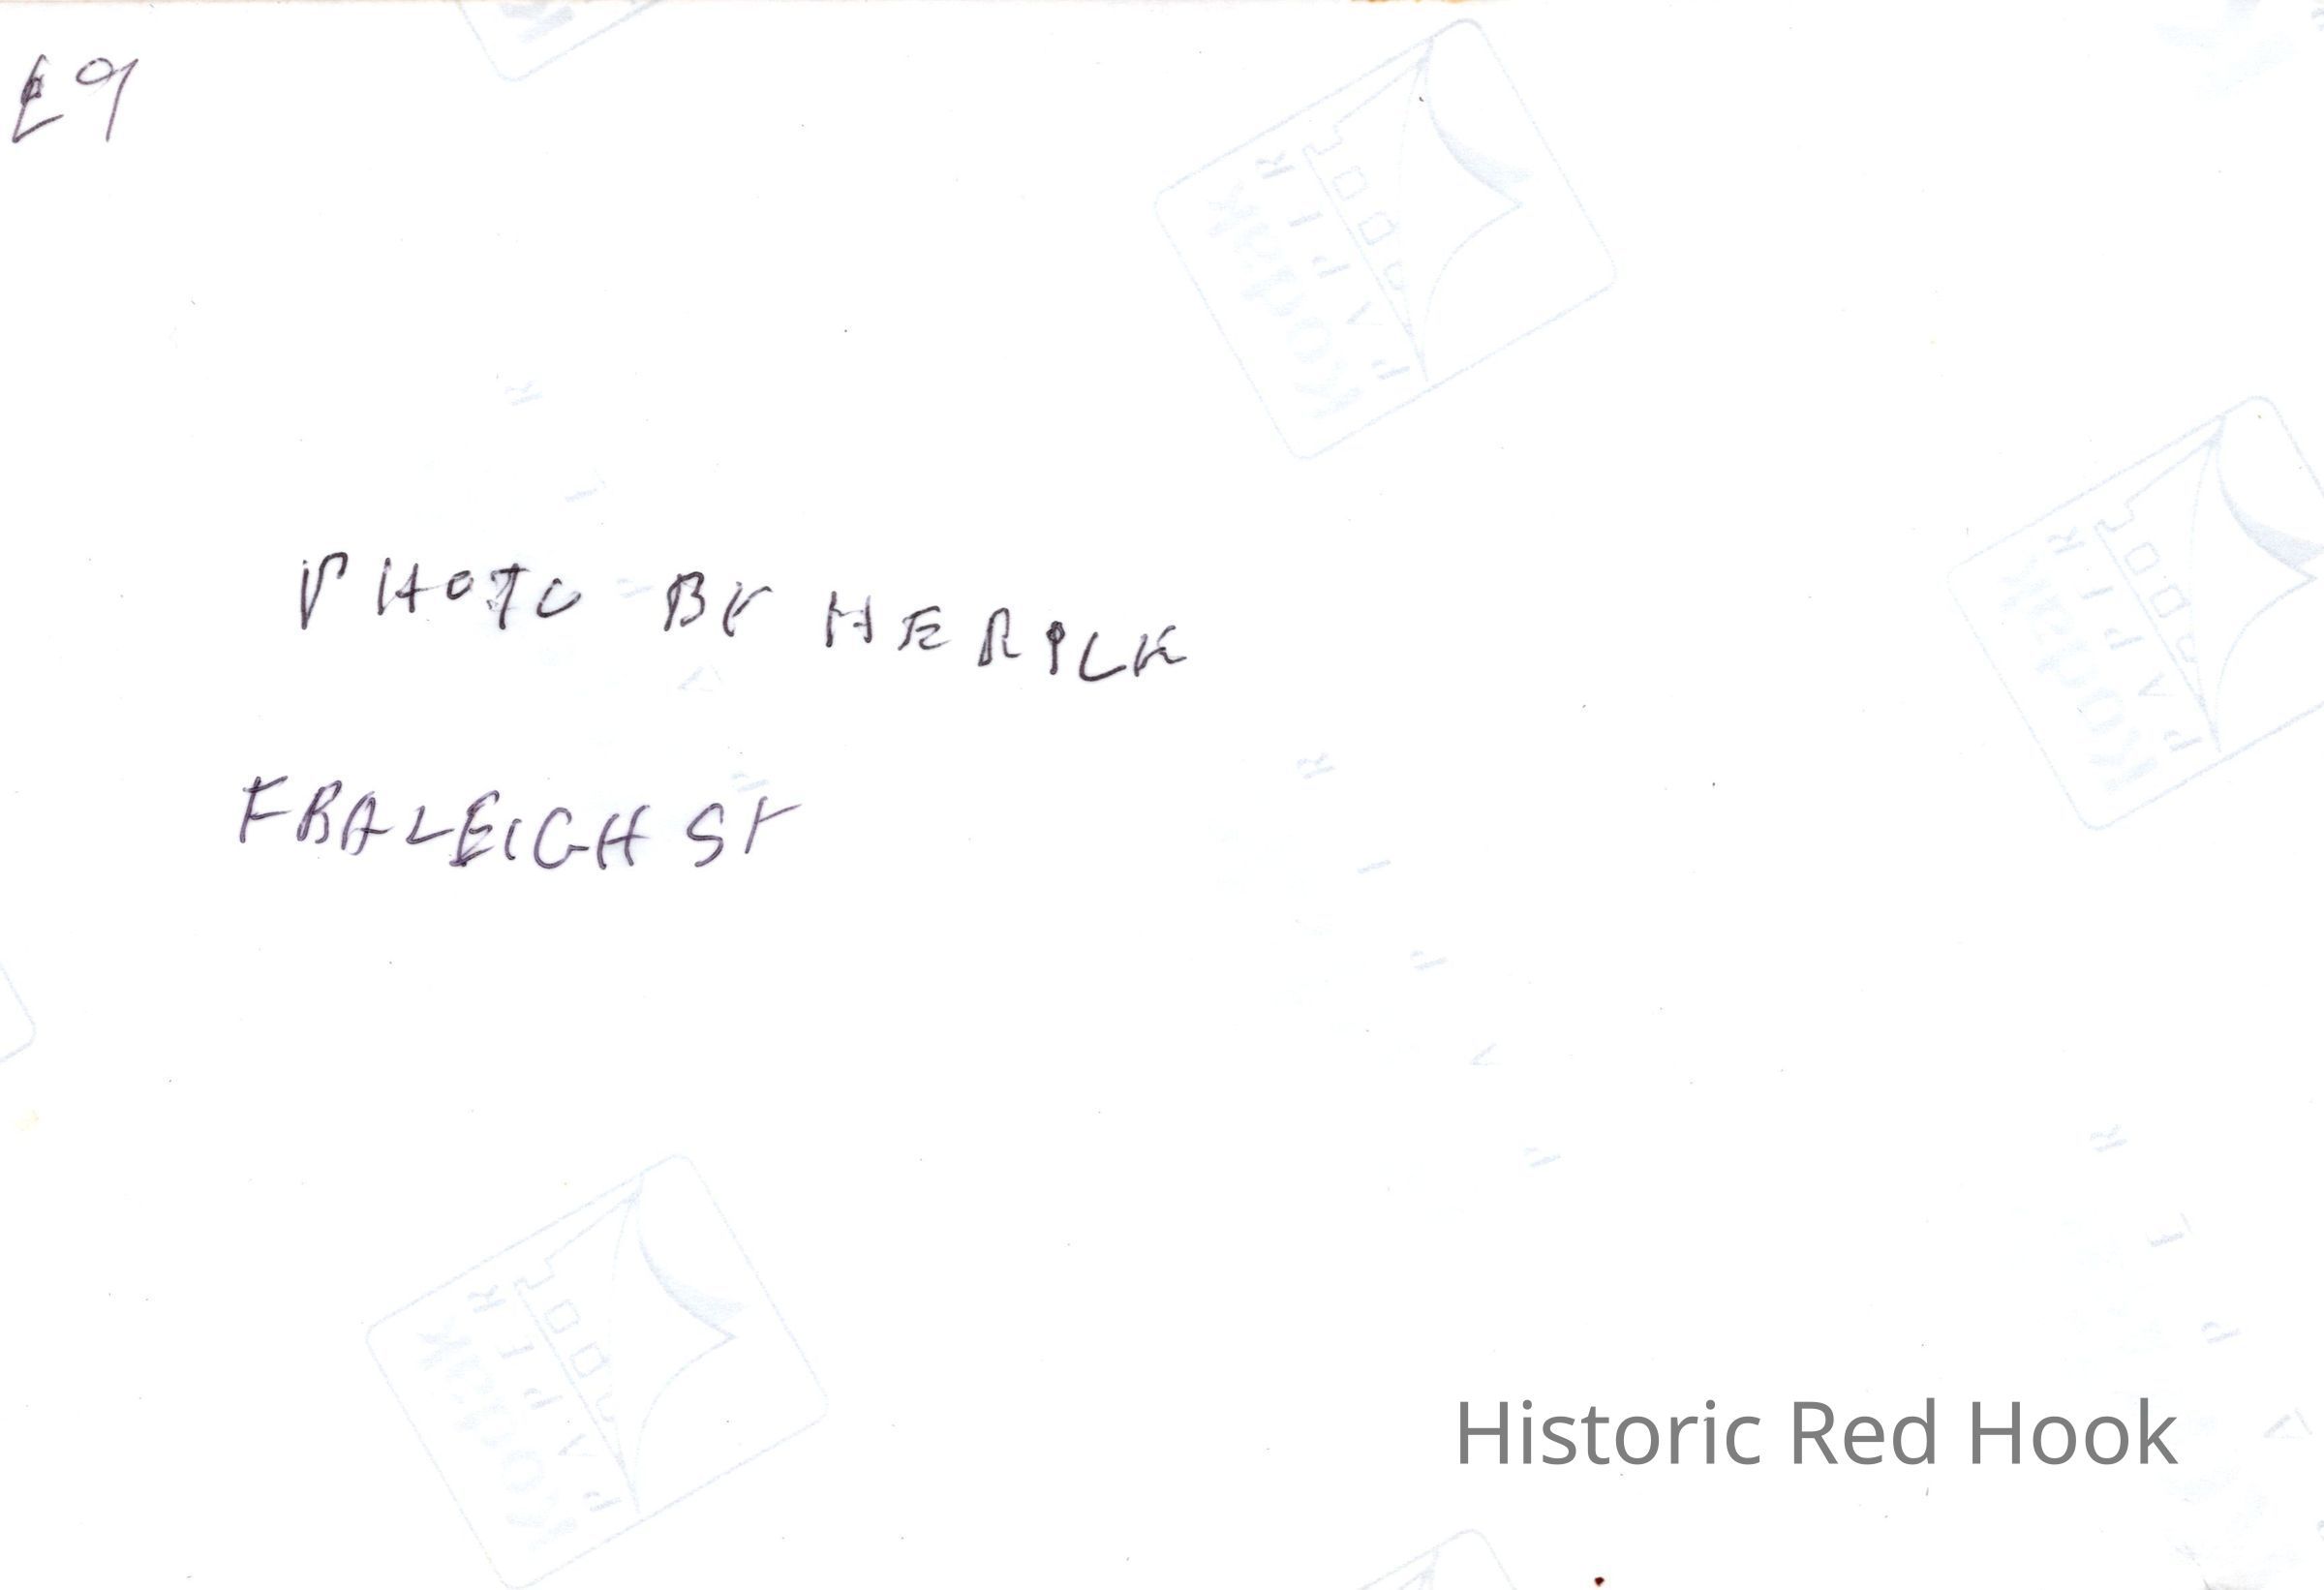 E9
PHOTO BY HERICK
FRALEIGH ST
Kodak
PAPIER
Kodak
PAPIER
Kodak
PAPER
Historic Red Hook